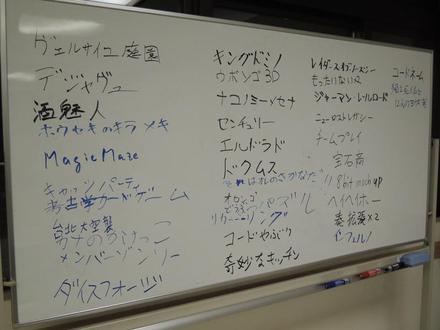 ヴェルサイユ庭園
デジャヴュ
酒魅人
ホウセキのキラメキ
Magic Maze
キャッシュパーティ
考古学カードゲーム
台北大空襲
メンバーゾンリー
ダイスフォージ
キングドミノ
ウボンゴ3D
ナコノミーセナ
センチュリー
エルドラド
ドクムス
それはオレのさかなだ
オロンゴ
どうぶつパズル
リカーーーリング
コードやぶり
奇妙なキッチン
もったいない
ジャーマンレイルロード
ニューロストレガシー
チームプレイ
宝石商
8bit mock up
ヘイヘイホー
奏拡張×2
インフェルノ
コードネーム